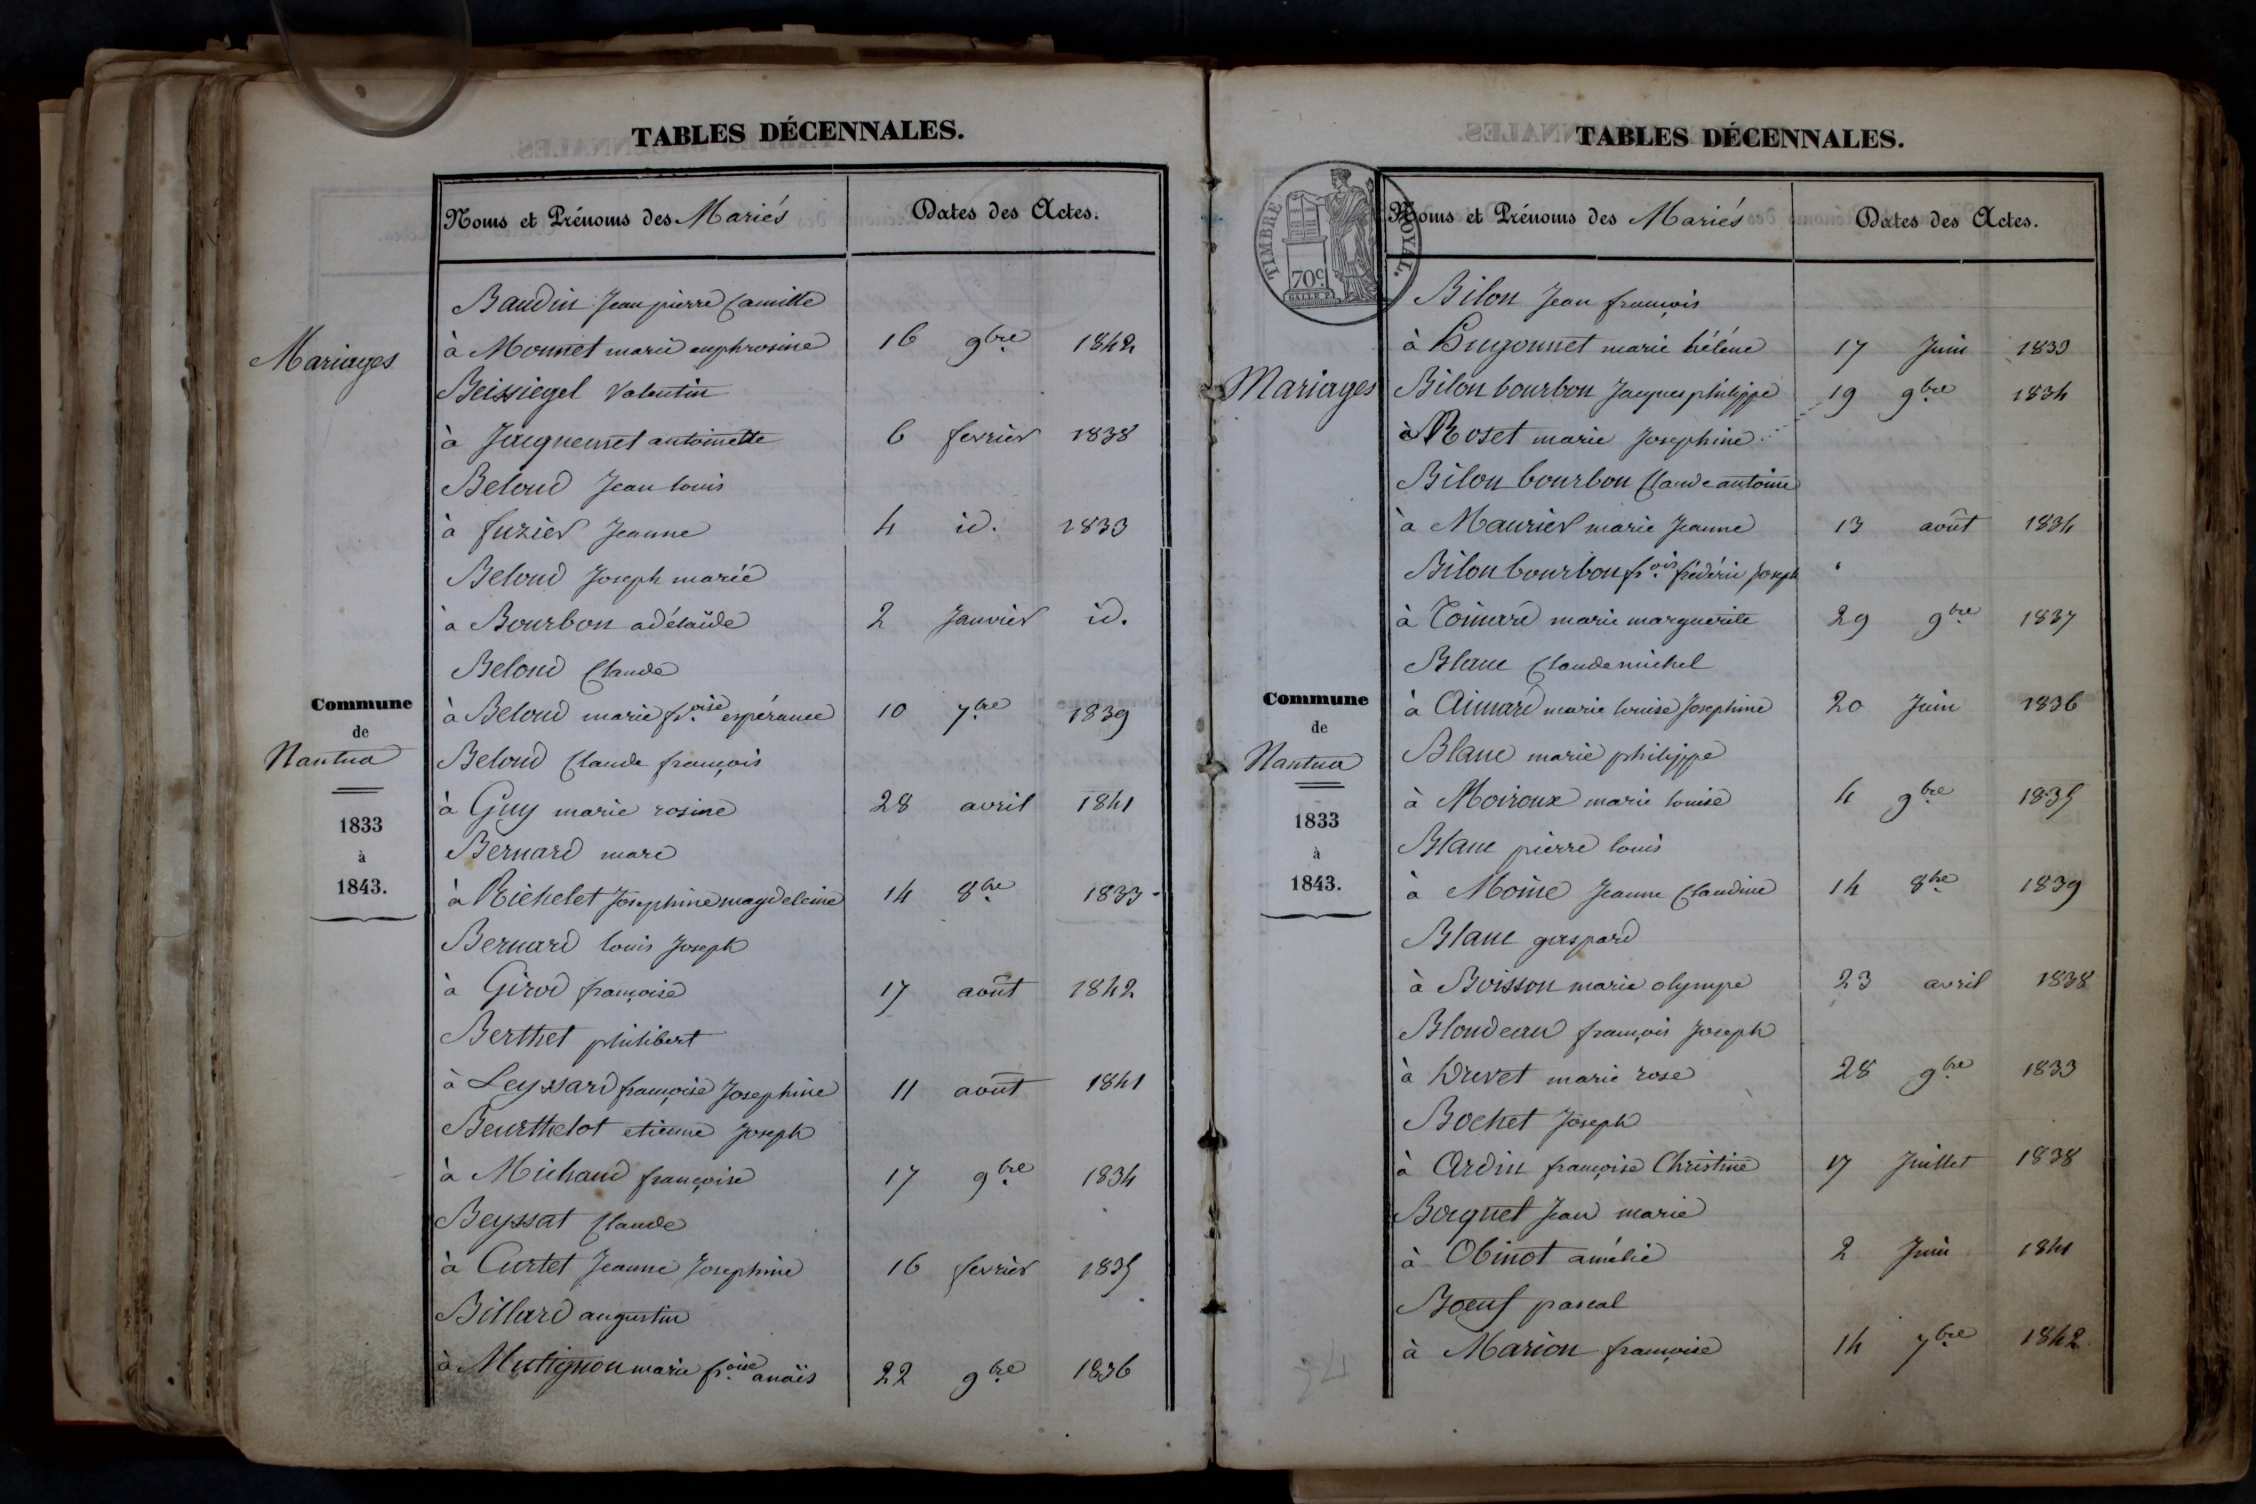 TABLES DÉCENNALES.
Noms et Prénoms des Mariés
Dates des Actes.
Mariages
Commune
de
Nantua
1833
à
1843.
Baudin Jean pierre Camille
à Monnet marie euphrosine 16 9bre 1842
Beissiegel Valentin
à Jacquemet antoinette 6 fevrier 1838
Beloud Jean louis
à fuzier Jeanne 4 id. 1833
Beloud Joseph marie
à Bourbon adélaïde 2 Janvier id.
Beloud Claude
à Beloud marie fr.oise espérance 10 7bre 1839
Beloud Claude françois
à Guy marie rosine 28 avril 1841
Bernard marc
à Richelet Josephine magdeleine 14 8bre 1833
Bernard louis Joseph
à Girod françoise 17 août 1842
Berthet philibert
à Leyssard françoise Josephine 11 août 1841
Beurthelot etienne Joseph
à Michaud françoise 17 9bre 1834
Beyssat Claude
à Curtet Jeanne Josephine 16 fevrier 1835
Billard augustin
à Mutignon marie fr.oise anaïs 22 9bre 1836
TABLES DÉCENNALES.
TIMBRE ROYAL.
70c
Noms et Prénoms des Mariés
Dates des Actes.
Mariages
Commune
de
Nantua
1833
à
1843.
Bilon Jean françois
à Hugonnet marie hélène 17 Juin 1833
Bilon bourbon Jacques philippe 19 9bre 1834
à Roset marie Josephine
Bilon bourbon Claude antoine
à Maurier marie Jeanne 13 août 1834
Bilon bourbon fr.ois frédéric Joseph
à Coinard marie marguerite 29 9bre 1837
Blanc Claude michel
à Aimard marie louise Josephine 20 Juin 1836
Blanc marie philippe
à Moiroux marie louise 4 9bre 1835
Blanc pierre louis
à Moine Jeanne Claudine 14 8bre 1839
Blanc gaspard
à Boisson marie olympe 23 avril 1838
Blondeau françois Joseph
à Drevet marie rose 28 9bre 1833
Bochet Joseph
à Ardin françoise Christine 17 Juillet 1838
Bocquet Jean marie
à Obinot amélie 2 Juin 1841
Boeuf pascal
à Marion françoise 14 7bre 1842